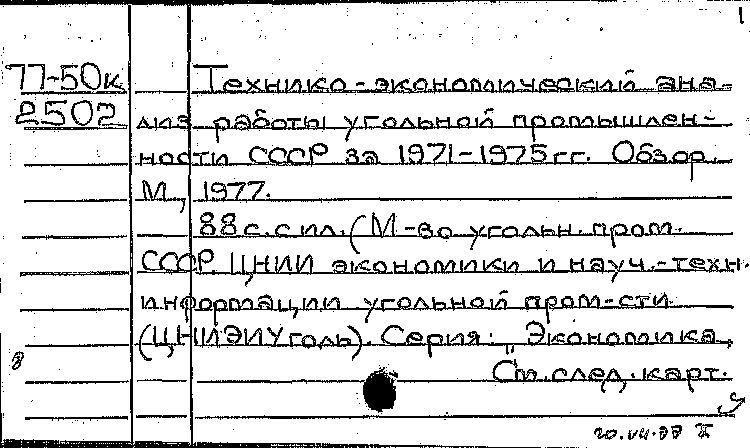 1
77-50к Технико-экономический ана-
2502 лиз работы угольной промышлен-
ности СССР за 1971-1975 гг. Обзор.
М., 1977.
88 с. с ил. (М-во угольн. пром.
СССР. ЦНИИ экономики и науч.-техн.
информации угольной пром-сти
(ЦНИЭИУголь). Серия: "Экономика,
8
См. след. карт.
20.VII.77